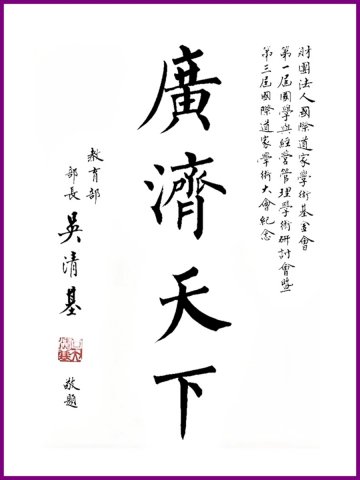 財團法人國際道家學術基金會
第一屆國學與經營管理學術研討會暨
第三屆國際道家學術大會紀念
廣濟天下
教育部
部長 吳清基
敬題